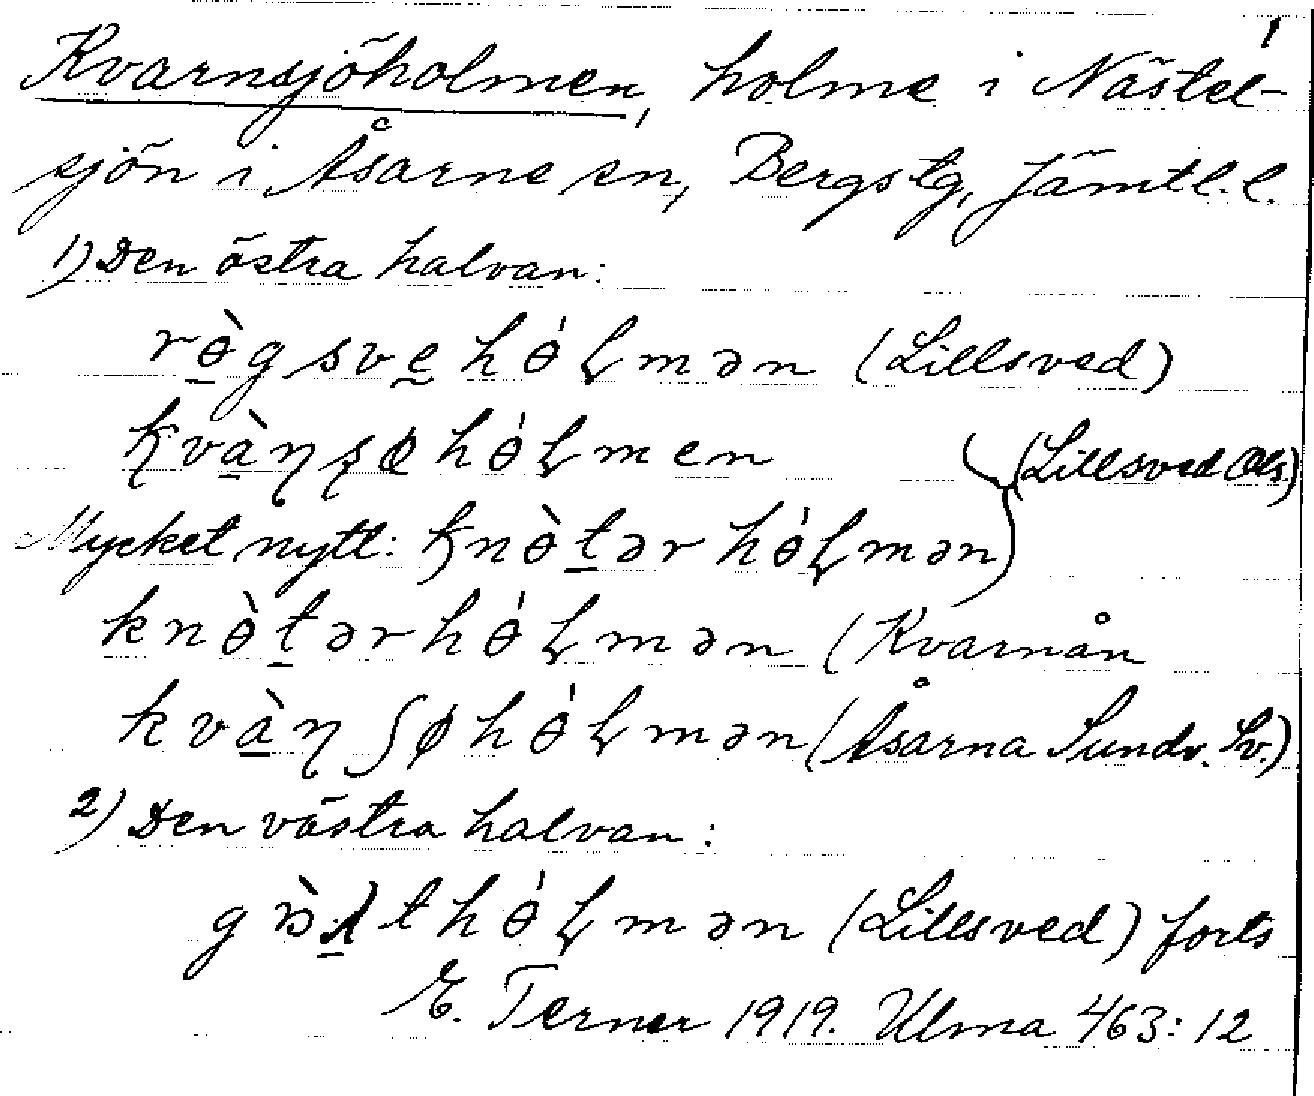 Kvarnsjöholmen, holme i Nästel-
sjön i Åsarne sn, Bergs tg, Jämtl. l.
1) Den östra halvan:
rɵ̀gsvehɵ́ɭmən (Lillsved)
kvàɳʂɵhɵ́ɭmen (Lillsved Åls.)
Mycket nytt: knɵ̀tərhɵ́ɭmən
knɵ̀tərhɵ́ɭmən (Kvarnån
kvàɳʃøhɵ́ɭmən (Åsarna Sundv. Sv.)
2) Den västra halvan:
hɵ́ɭmən (Lillsved) forts
E. Terner 1919. Ulma 463:12